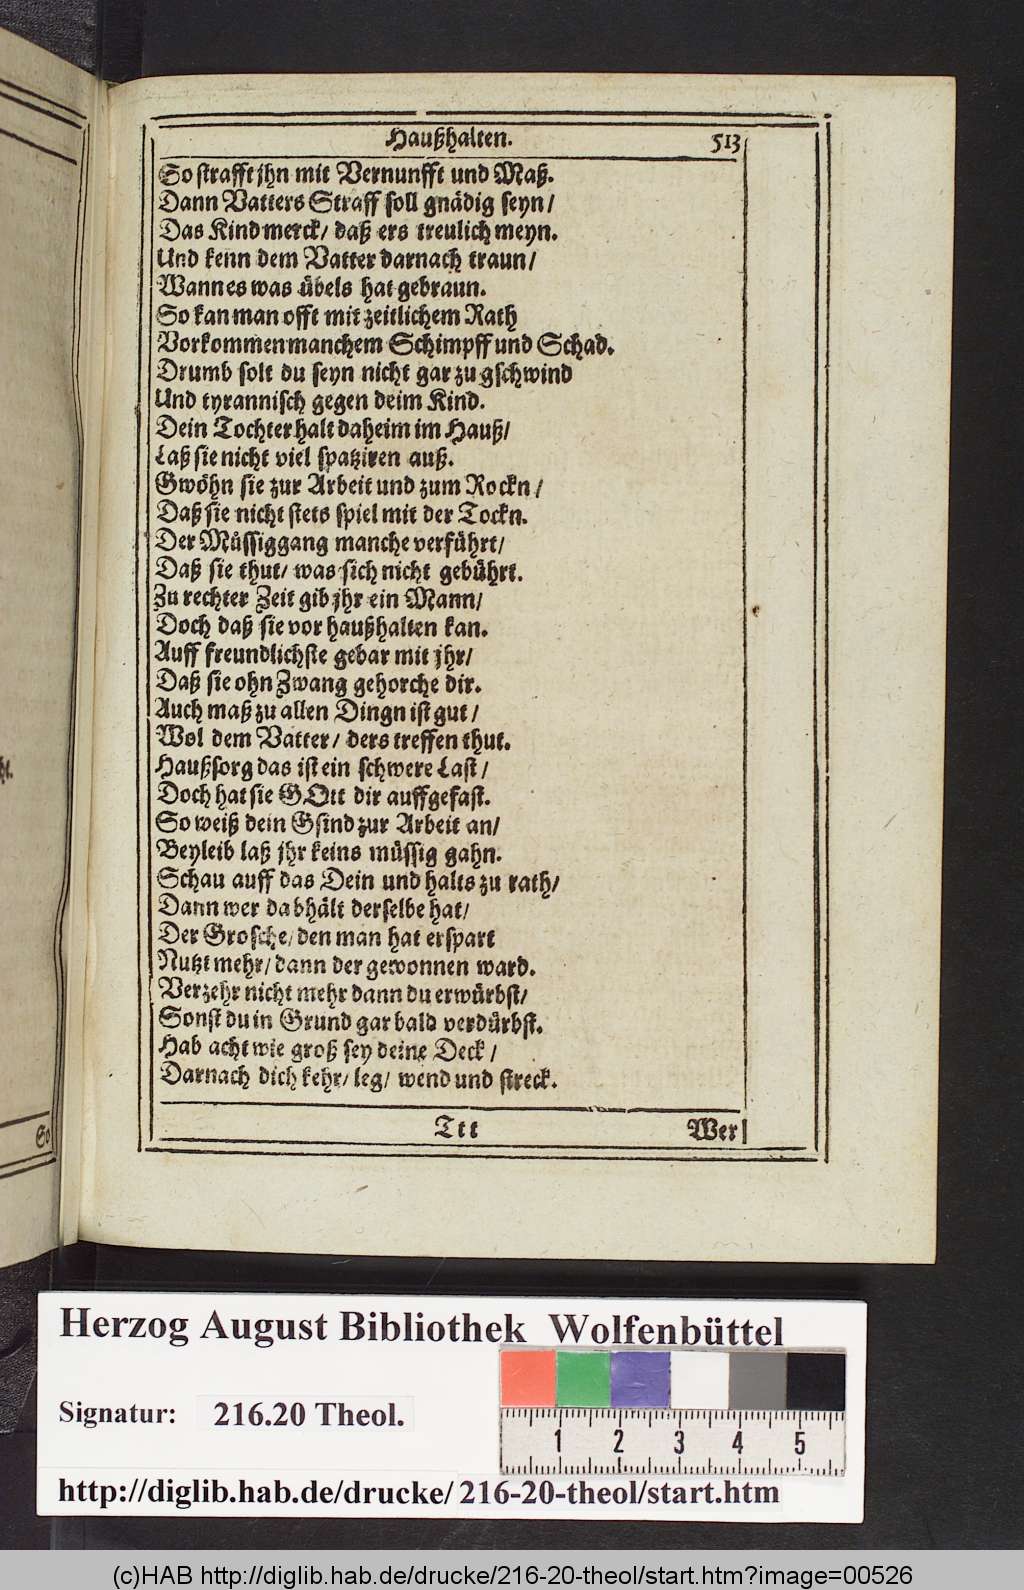 Haußhalten. 513
So strafft jhn mit Vernunfft und Maß.
Dann Vatters Straff soll gnädig seyn/
Das Kind merck/ daß ers treulich meyn.
Und kenn dem Vatter darnach traun/
Wann es was übels hat gebraun.
So kan man offt mit zeitlichem Rath
Vorkommen manchem Schimpff und Schad.
Drumb solt du seyn nicht gar zu gschwind
Und tyrannisch gegen deim Kind.
Dein Tochter halt daheim im Hauß/
Laß sie nicht viel spatziren auß.
Gwöhn sie zur Arbeit und zum Rockn/
Daß sie nicht stets spiel mit der Tockn.
Der Müssiggang manche verführt/
Daß sie thut/ was sich nicht gebührt.
Zu rechter Zeit gib jhr ein Mann/
Doch daß sie vor haußhalten kan.
Auff freundlichste gebar mit jhr/
Daß sie ohn Zwang gehorche dir.
Auch maß zu allen Dingn ist gut/
Wol dem Vatter/ ders treffen thut.
Haußsorg das ist ein schwere Last/
Doch hat sie GOtt dir auffgefast.
So weiß dein Gsind zur Arbeit an/
Beyleib laß jhr keins müssig gahn.
Schau auff das Dein und halts zu rath/
Dann wer da bhält derselbe hat/
Der Grosche/ den man hat erspart
Nutzt mehr/ dann der gewonnen ward.
Verzehr nicht mehr dann du erwürbst/
Sonst du in Grund gar bald verdürbst.
Hab acht wie groß sey deine Deck/
Darnach dich kehr/ leg/ wend und streck.
Ttt Wer
ht.
So
Herzog August Bibliothek Wolfenbüttel
Signatur: 216.20 Theol.
1 2 3 4 5
http://diglib.hab.de/drucke/216-20-theol/start.htm
(c)HAB http://diglib.hab.de/drucke/216-20-theol/start.htm?image=00526